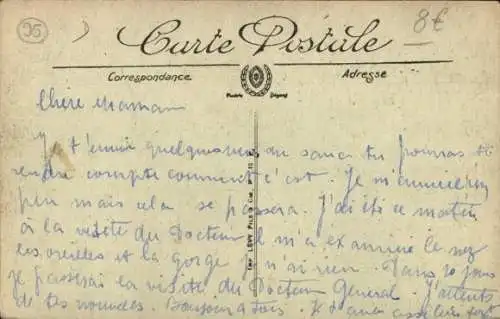 8€
Carte Postale
Correspondance
Adresse
Chère Maman
t'envoie quelques vues du sana tu pourras te
rendre compte comment c'est. Je m'ennuie bien
peu mais cela se passera. J'ai été ce matin
à la visite du Docteur il m'a examiné le nez
les oreilles et la gorge n'ai rien. Dans 10 jours
je passerai la visite du Docteur Général J'attends
de tes nouvelles. Bonjour à tous. Je